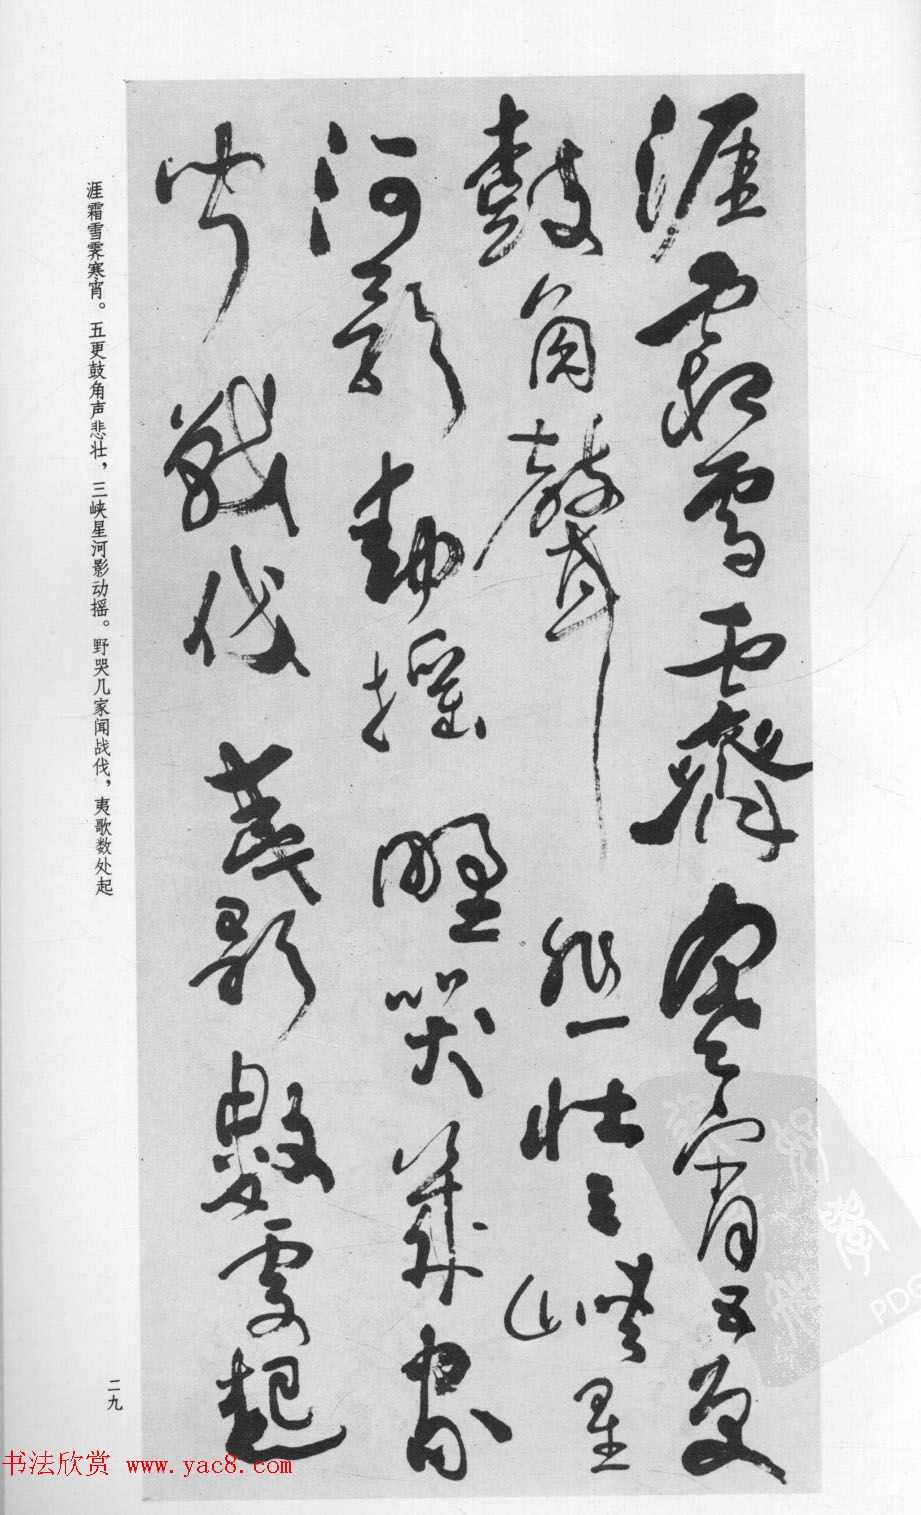 涯霜雪霽寒宵五更
鼓角聲悲壯三峽星
河影動搖野哭幾家
聞戰伐夷歌數處起
涯霜雪霁寒宵。五更鼓角声悲壮，三峡星河影动摇。野哭几家闻战伐，夷歌数处起
二九
书法欣赏 www.yac8.com
PDG